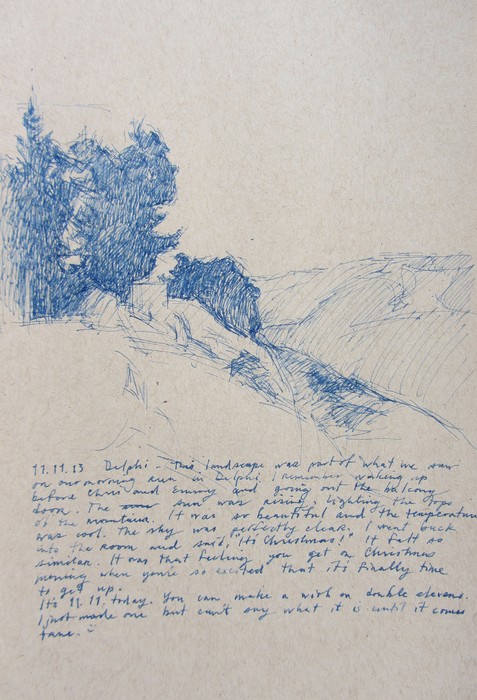 11.11.13 Delphi - This landscape was part of what we saw
on our morning run in Delphi. I remember waking up
before Chris and Emmy and going out the balcony
door. The sun was rising & lighting the tops
of the mountains. It was so beautiful and the temperature
was cool. The sky was perfectly clear. I went back
into the room and said, "It's Christmas!" It felt so
similar. It was that feeling you get on Christmas
morning when you're so excited that it's finally time
to get up.
It's 11.11. today. You can make a wish on double elevens.
I just made one but can't say what it is until it comes
true.